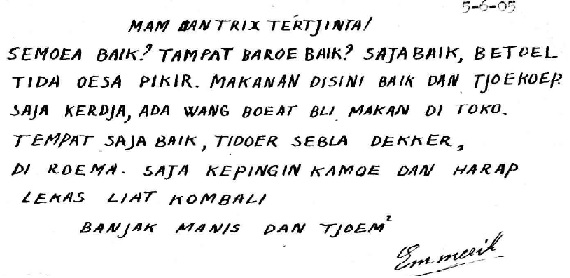 5-6-05
MAM DAN TRIX TERTJINTA!
SEMOEA BAIK? TAMPAT BAROE BAIK? SAJA BAIK, BETOEL
TIDA OESA PIKIR. MAKANAN DISINI BAIK DAN TJOEKOEP.
SAJA KERDJA, ADA WANG BOEAT BLI MAKAN DI TOKO.
TEMPAT SAJA BAIK, TIDOER SEBLA DEKKER,
DI ROEMA. SAJA KEPINGIN KAMOE DAN HARAP
LEKAS LIAT KOMBALI
BANJAK MANIS DAN TJOEM²
Emmerik